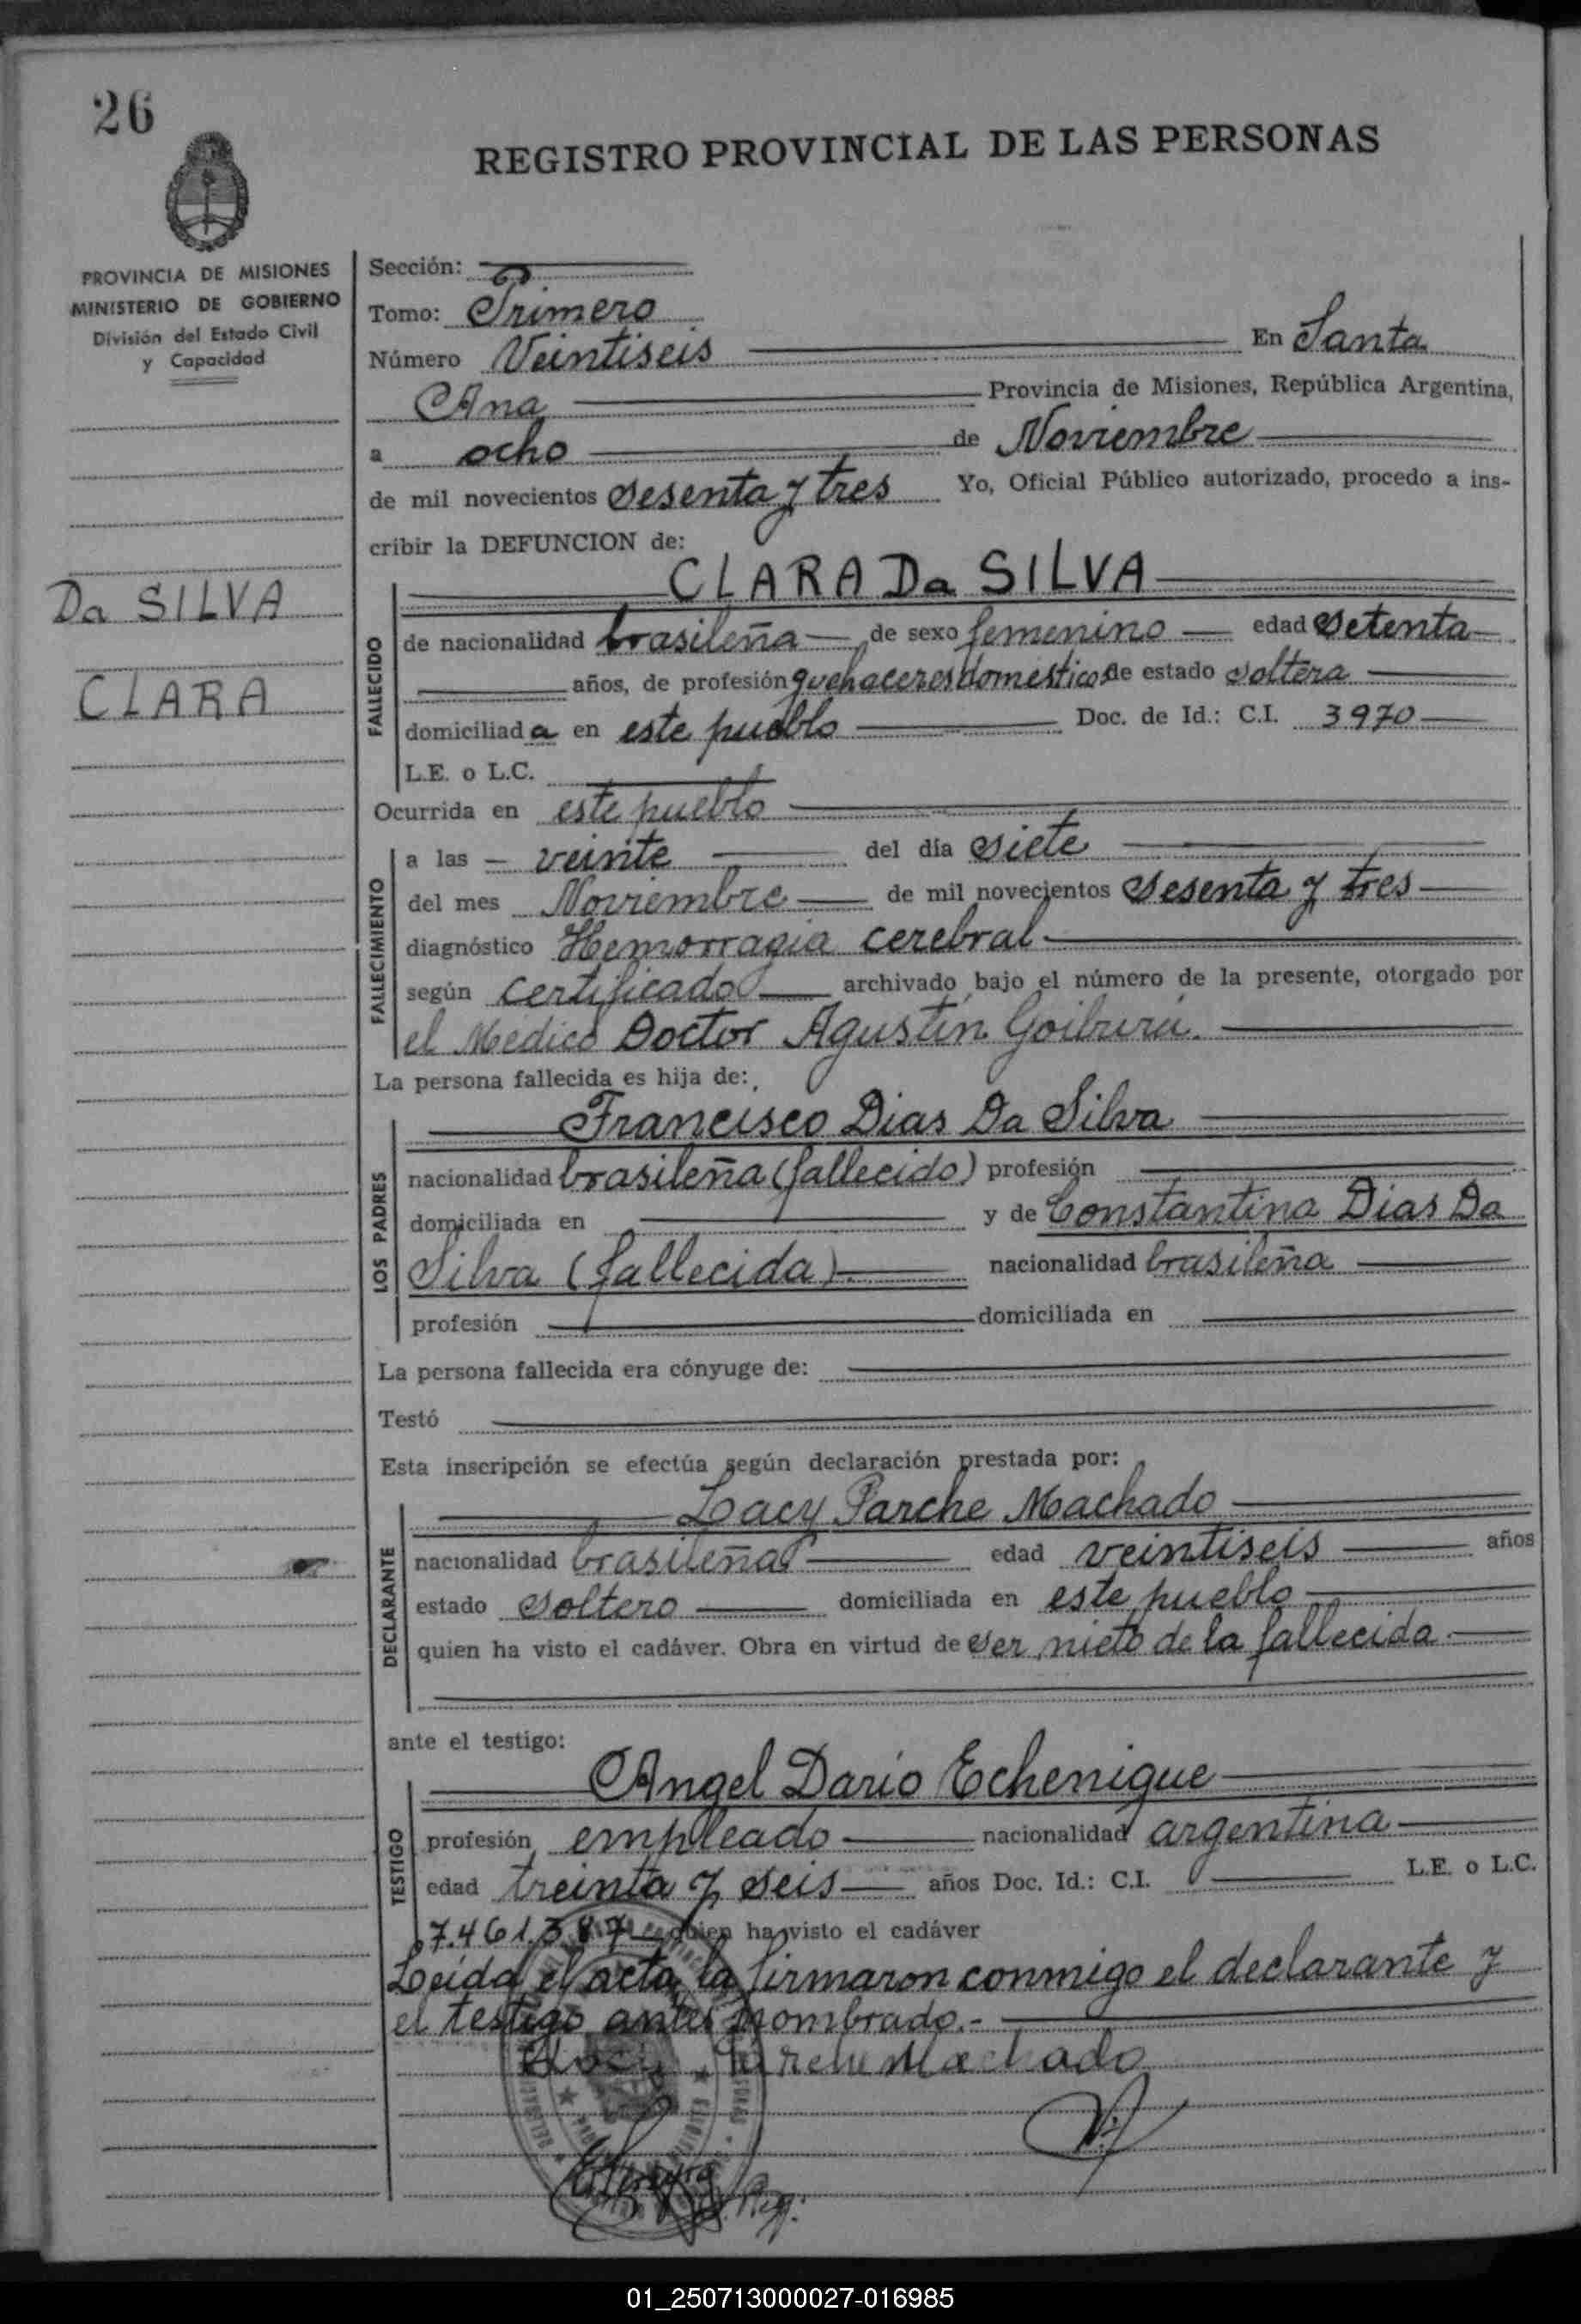 26
REGISTRO PROVINCIAL DE LAS PERSONAS
PROVINCIA DE MISIONES
MINISTERIO DE GOBIERNO
División del Estado Civil
y Capacidad
Da SILVA
CLARA
Sección:
Tomo: Primero
Número Veintiseis En Santa
Ana Provincia de Misiones, República Argentina,
a ocho de Noviembre
de mil novecientos sesenta y tres Yo, Oficial Público autorizado, procedo a ins-
cribir la DEFUNCION de:
CLARA Da SILVA
FALLECIDO
de nacionalidad brasileña de sexo femenino edad setenta
años, de profesión quehaceres domésticos de estado soltera
domiciliada en este pueblo Doc. de Id.: C.I. 3970
L.E. o L.C.
Ocurrida en este pueblo
FALLECIMIENTO
a las veinte del día siete
del mes Noviembre de mil novecientos sesenta y tres
diagnóstico Hemorragia cerebral
según certificado archivado bajo el número de la presente, otorgado por
el Medico Doctor Agustín Goiburú.
La persona fallecida es hija de:
LOS PADRES
Francisco Dias Da Silva
nacionalidad brasileña (fallecido) profesión
domiciliada en y de Constantina Dias Da
Silva (fallecida) nacionalidad brasileña
profesión domiciliada en
La persona fallecida era cónyuge de:
Testó
Esta inscripción se efectúa según declaración prestada por:
DECLARANTE
Lacy Parche Machado
nacionalidad brasileña edad veintiseis años
estado soltero domiciliada en este pueblo
quien ha visto el cadáver. Obra en virtud de ser nieto de la fallecida.
ante el testigo:
TESTIGO
Angel Dario Echenique
profesión empleado nacionalidad argentina
edad treinta y seis años Doc. Id.: C.I. L.E. o L.C.
7.461.387 quien ha visto el cadáver
Leida el acta la firmaron conmigo el declarante y
el testigo antes nombrado.-
Machado
01_250713000027-016985